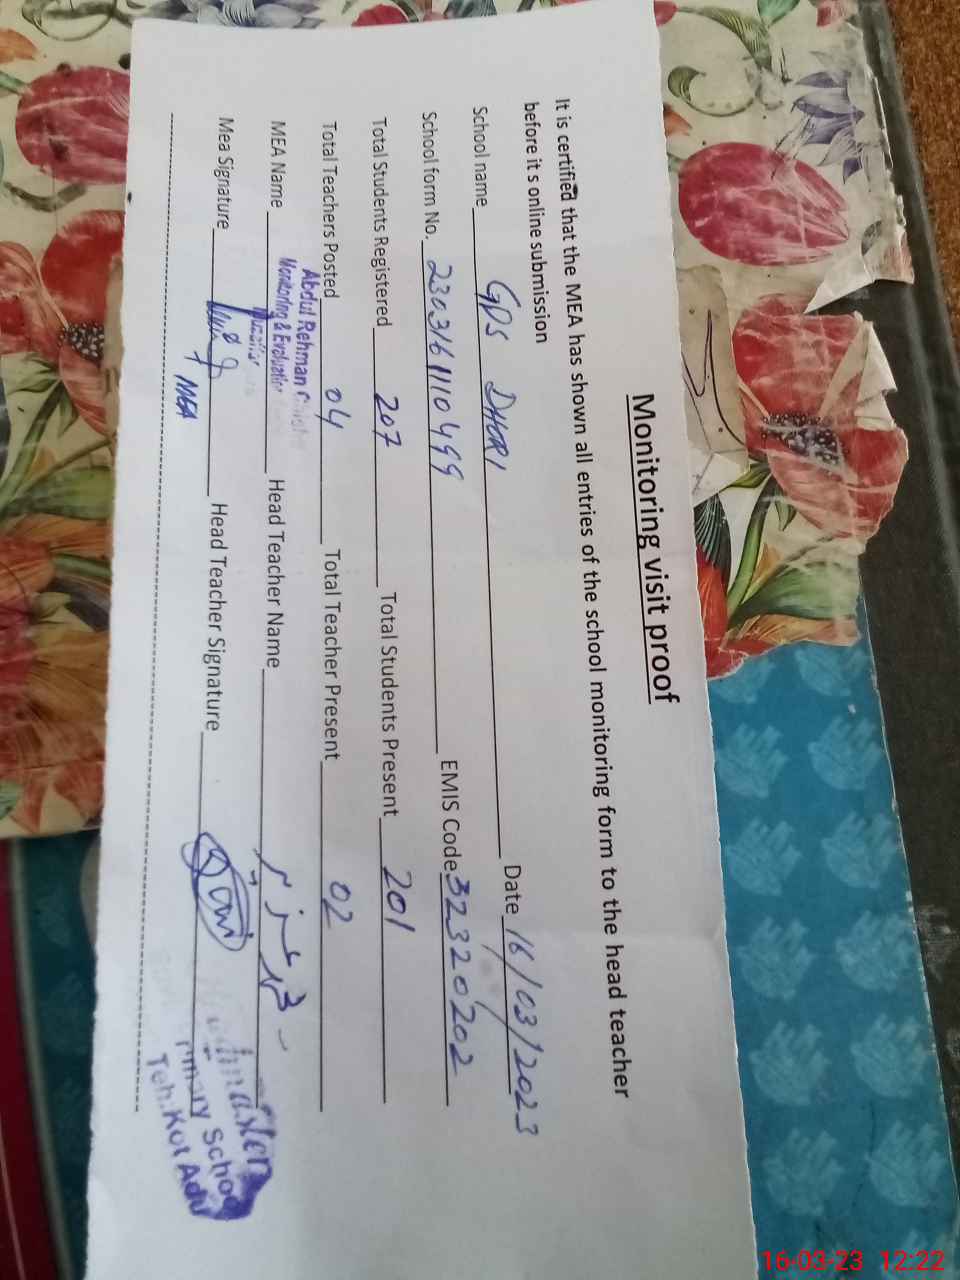 Monitoring visit proof
It is certified that the MEA has shown all entries of the school monitoring form to the head teacher
before it s online submission
School name GPS DHORI Date 16/03/2023
School form No. 2303161110499 EMIS Code 32320202
Total Students Registered 207 Total Students Present 201
Total Teachers Posted 04 Total Teacher Present 02
MEA Name Abdul Rehman Head Teacher Name
Monitoring & Evaluation
Mea Signature Head Teacher Signature
MEA
Primary School
Teh. Kot Adu
16-03-23 12:22